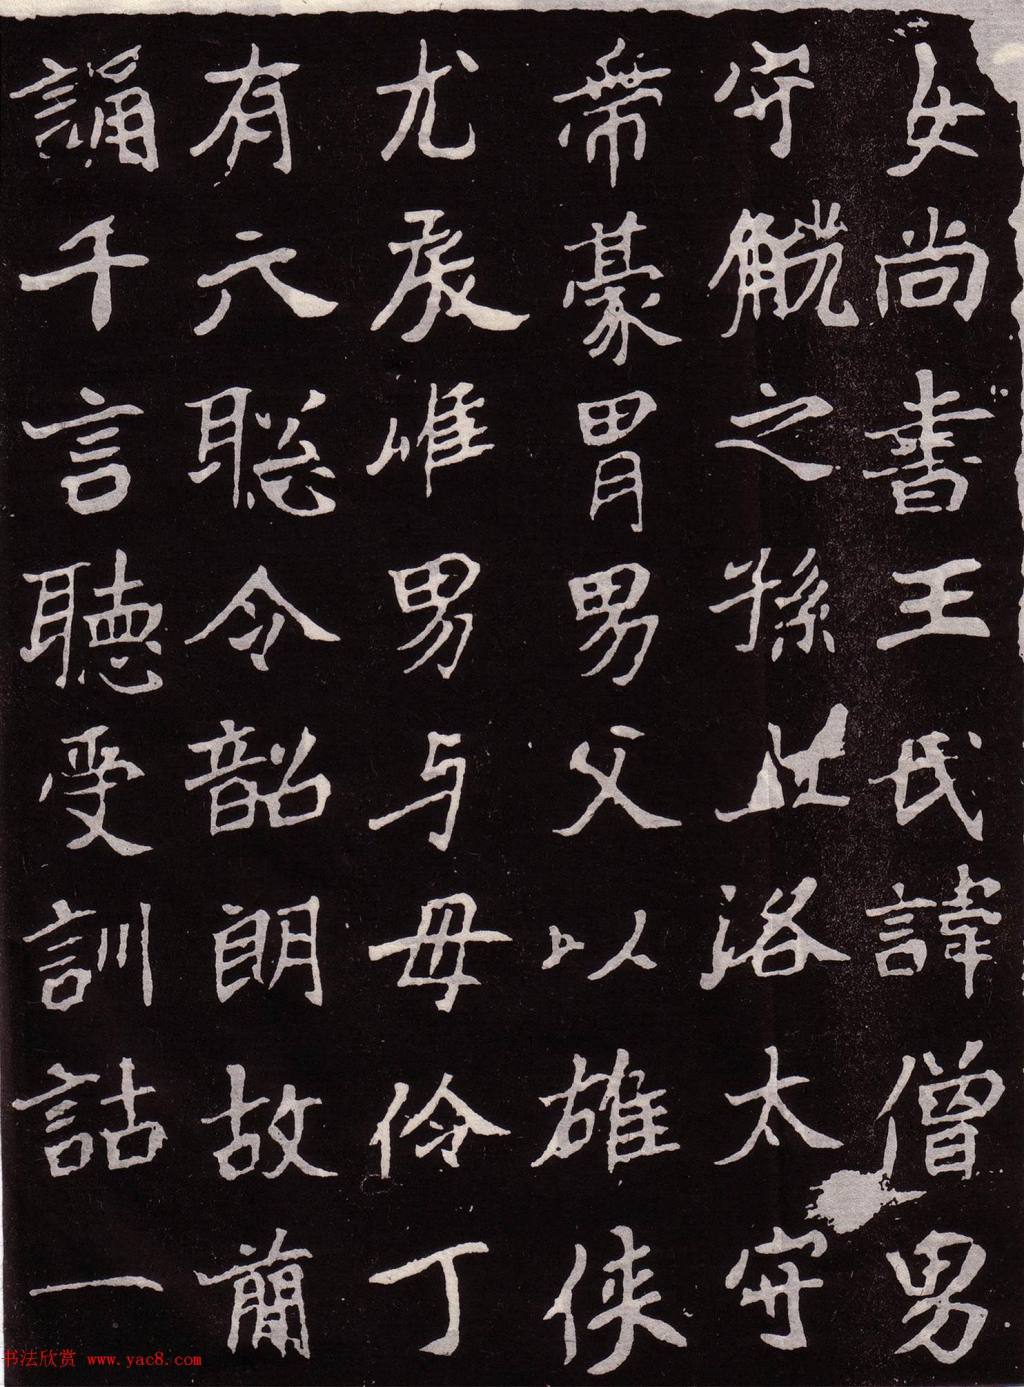 女尚書王氏諱僧男
守觥之孫洛太守
豪胃男父以雄俠
尤辰唯男与母伶丁
有六聡令韶朗故簡
誦千言聽受訓詁一
书法欣赏 www.yac8.com